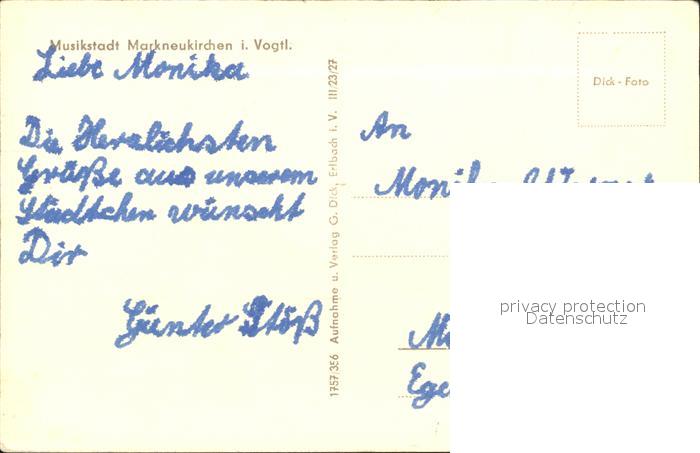 Musikstadt Markneukirchen i. Vogtl.
Liebe Monika
Die Herzlichsten
Grüße aus unserem
Städtchen wünscht
Dir
Günter Stöß
1757/356 Aufnahme u. Verlag G. Dick, Erlbach i. V. III/23/27
Dick-Foto
An
privacy protection
Datenschutz